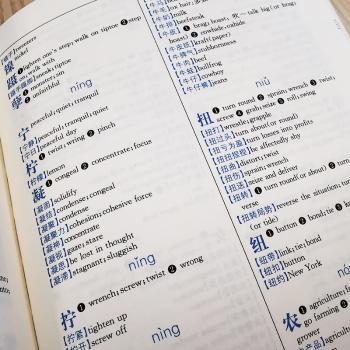 nickel
❶ lighten one's step; walk on tiptoe ❷ step
walk with
walk on tiptoe
monster; sin
❷ unfaithful
níng
宁
peaceful; quiet; tranquil
【宁静】peaceful; tranquil; quiet
❶ twist; wring ❷ pinch
柠
【柠檬】lemon
凝
❶ congeal ❷ concentrate; focus
【凝固】solidify
【凝结】condense; congeal
【凝聚】condense
【凝聚力】cohesion; cohesive force
【凝神】concentrate
【凝视】gaze; stare
【凝思】be lost in thought
【凝滞】stagnant; sluggish
nǐng
拧
❶ wrench; screw; twist ❷ wrong
【拧紧】tighten up
【拧开】screw off
nìng
【牛奶】milk
【牛排】beefsteak
【牛皮】
❶
【牛皮纸】kraft (paper)
【牛脾气】stubbornness
【牛肉】beef
【牛蛙】bullfrog
【牛仔】cowboy
【牛仔裤】jeans
niǔ
扭
❶ turn round ❷ sprain; wrench ❸ twist;
screw ❹ grab; seize ❺ roll; swing
【扭打】wrestle; grapple
【扭过头】turn about (or round)
【扭亏为盈】turn losses into profits
【扭扭捏捏】be affectedly shy
【扭曲】distort; twist
【扭伤】sprain; wrench
【扭送】seize and deliver
【扭转】❶ turn round (or about) ❷ turn
verse
【扭转局势】reverse the situation; turn
(or tide)
纽
❶ button ❷ bond; tie
【纽带】link; tie; bond
【纽扣】button
【纽约】New York
农
❶ agriculture;
go farming ❷
grower
【农产品】